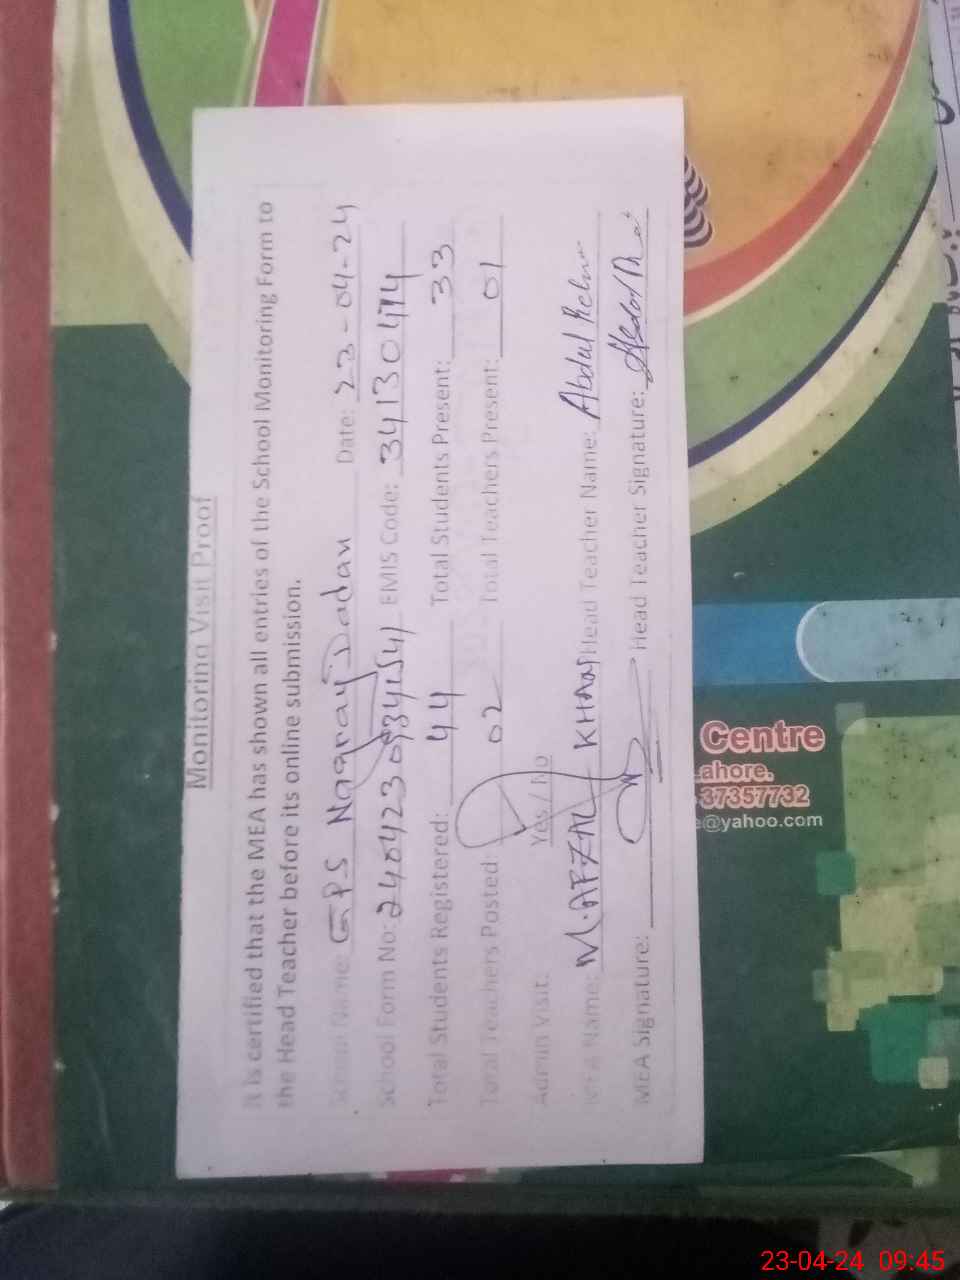 Monitoring Visit Proof
It is certified that the MEA has shown all entries of the School Monitoring Form to
the Head Teacher before its online submission.
School Name: GPS Date: 23-04-24
School Form No: EMIS Code:
Total Students Registered: 44 Total Students Present: 33
Total Teachers Posted: 02 Total Teachers Present: 01
Admin Visit: Yes / No
MEA Name: M. AFZAL KHAN Head Teacher Name: Abdul
MEA Signature: Head Teacher Signature:
Centre
Lahore.
37357732
e@yahoo.com
23-04-24 09:45